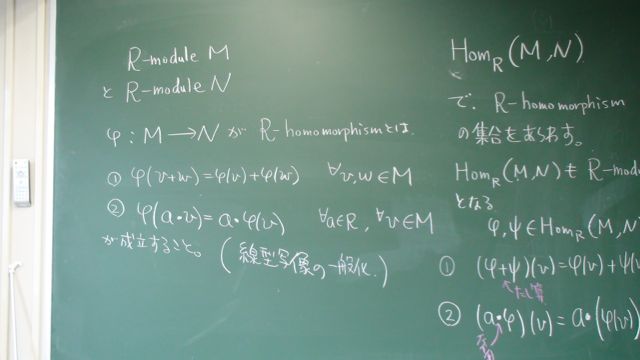 R-module M
と R-module N
φ : M → N が R-homomorphismとは、
① φ(v+w) = φ(v) + φ(w) ∀v,w ∈ M
② φ(a・v) = a・φ(v) ∀a∈R, ∀v∈M
が成立すること。(線型写像の一般化)
Hom_R(M,N)
で、R-homomorphism
の集合をあらわす。
Hom_R(M,N)も R-modu
となる
φ,ψ ∈ Hom_R(M,N
① (φ+ψ)(v) = φ(v) + ψ(v
たし算
② (a・φ)(v) = a・(φ(v)